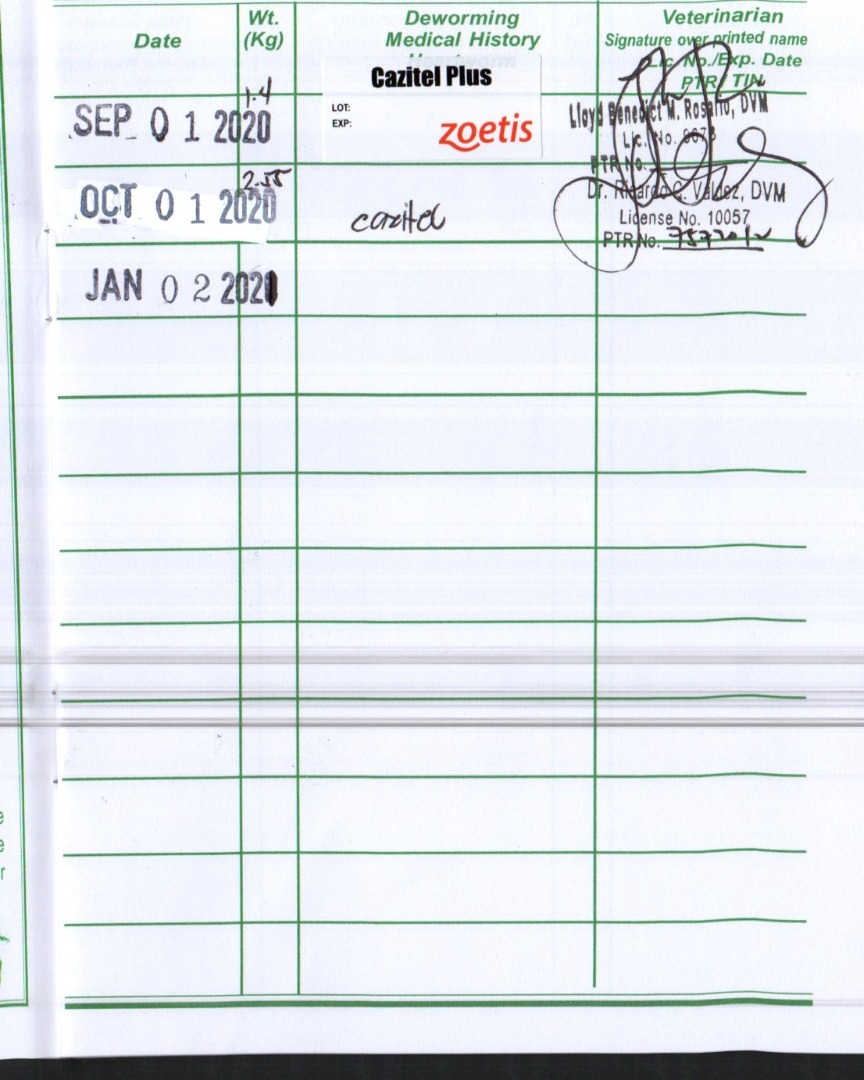 Date
Wt.
(Kg)
Deworming
Medical History
Heartworm
Veterinarian
Signature over printed name
Lic. No./Exp. Date
PTR/ TIN
SEP 0 1 2020
1.4
Cazitel Plus
LOT:
EXP:
zoetis
Lloyd Benedict M. Rosario, DVM
Lic. No.
PTR No.
OCT 0 1 2020
2.55
cazitel
Dr. Ricardo C. Valdez, DVM
License No. 10057
PTR No.
JAN 0 2 2021
e
e
r